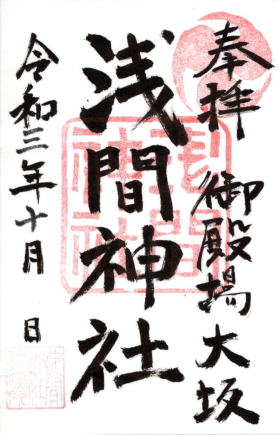 奉拝
御殿場大坂
浅間神社
令和三年十月 日